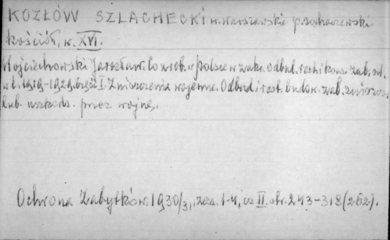 KOZŁÓW SZLACHECKI w. warszawskie p. sochaczewski
kościół, w. XVI.
Wojciechowski Jarosław. Co zrob. w Polsce w zakr. odbud. rest. i kons. zab. od.
w l. 1919-1929. Część I. Zniszczenia wojenne. Odbud. i rest. budow. zab. zniszcz.
lub uszkodz. przez wojnę.
Ochrona Zabytków. 1930/31, zesz. 1-4, cz II. str. 243-318 (262).